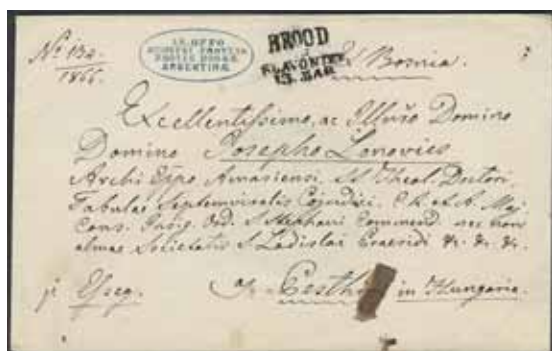 Nº 132.
1866.
EX OFFO
BROOD
SLAVONIEN
13. MAR.
Bosnia.
Excellentissimo, ac Illmo Domino
Domino Josepho Lonovics
Archi Eppo Amasiensi, SS Theol. Doctori
Tabulae Septemviralis Cojudici, C. R. et A. Maj
Cons. Insig. Ord. S Stephani Commend. nec non
almae Societatis S Ladislai Praesidi &c. &c. &c.
Esseg.
Pesth
in Hungaria.